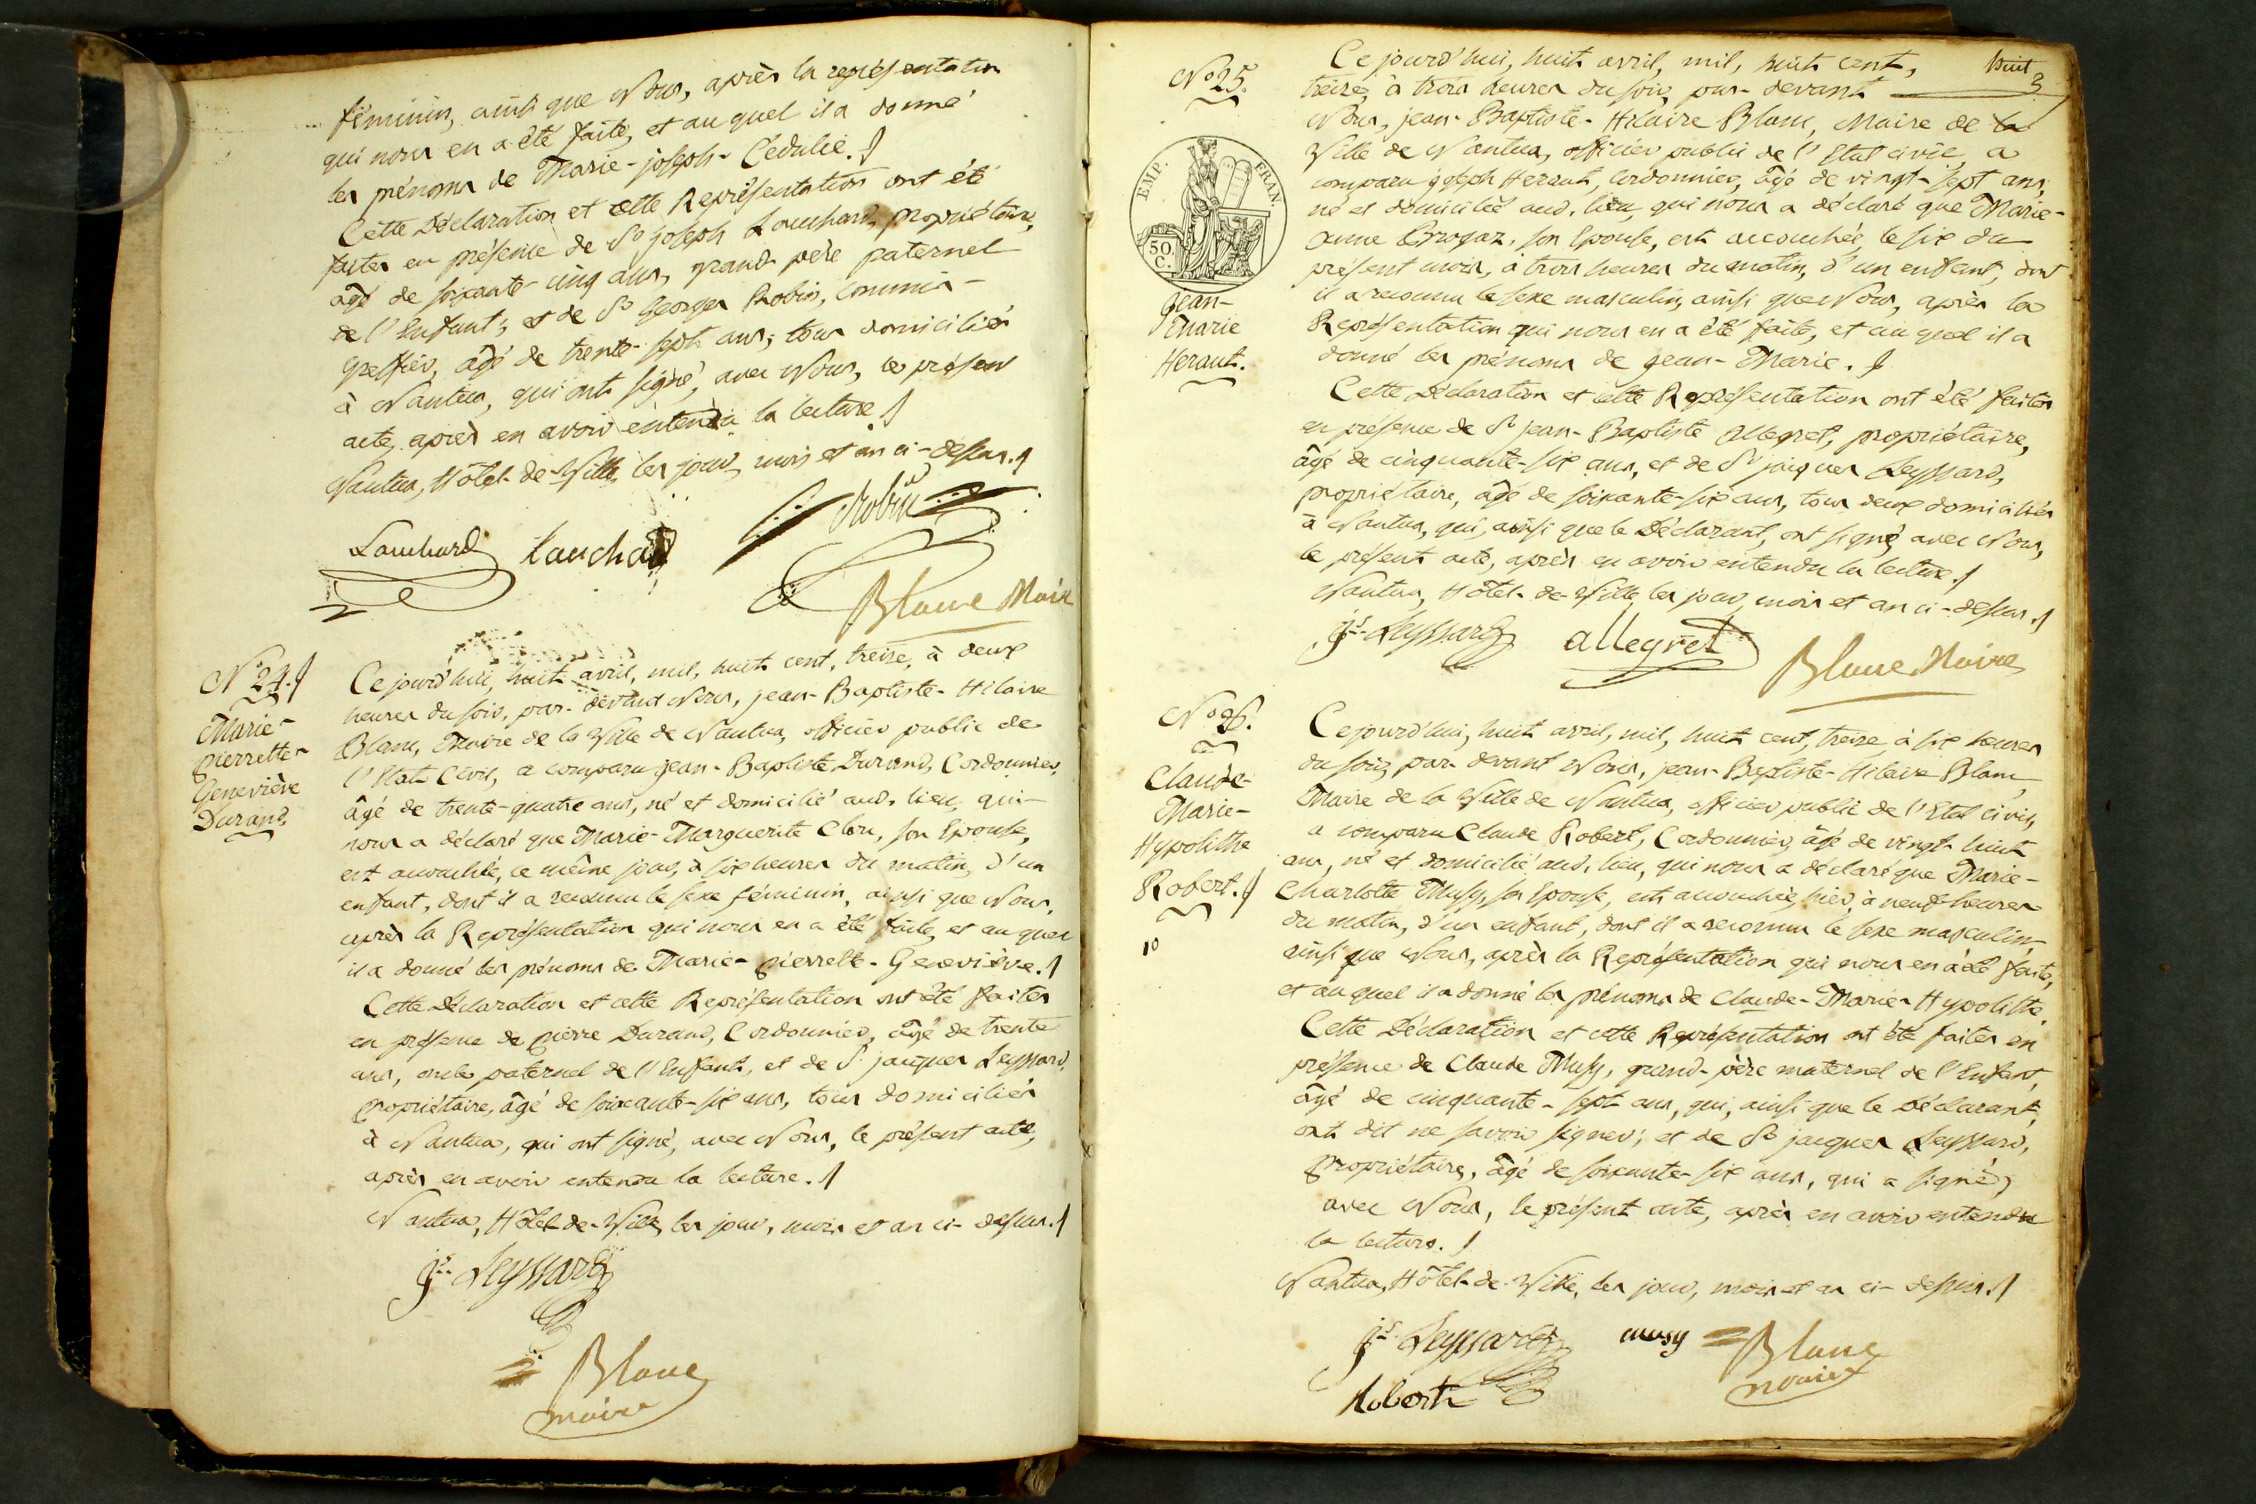 féminin, ainsi que Nous, après la représentation
qui nous en a été faite, et au quel il a donné
les prénoms de Marie-joseph-Cédulie.
Cette Déclaration et cette Représentation ont été
faites en présence de Sr joseph Louchard, propriétaire,
âgé de soixante-cinq ans, grand père paternel
de l'Enfant; et de Sr Georges Robin, commis-
greffier, âgé de trente-sept ans; tous domiciliés
à Nantua, qui ont signé, avec Nous, le présent
acte, après en avoir entendu la lecture.
Nantua, Hôtel-de-Ville, les jour, mois et an ci-dessus.
Louchard Louchard Robin
Blanc Maire
No 24.
Marie-
pierrette-
Geneviève
Durand
Ce jourd'hui, huit avril, mil, huit cent, treize, à deux
heures du soir, par-devant Nous, jean-Baptiste-Hilaire
Blanc, Maire de la Ville de Nantua, officier public de
l'Etat Civil, a comparu jean-Baptiste Durand, Cordonnier,
âgé de trente-quatre ans, né et domicilié aud. lieu, qui
nous a déclaré que Marie-Marguerite Clou, son Epouse,
est accouchée, ce même jour, à six heures du matin, d'un
enfant, dont il a reconnu le sexe féminin, ainsi que Nous,
après la Représentation qui nous en a été faite, et au quel
il a donné les prénoms de Marie-pierrette-Geneviève.
Cette Déclaration et cette Représentation ont été faites
en présence de pierre Durand, Cordonnier, âgé de trente
ans, oncle paternel de l'Enfant, et de Sr jacques Leyssard,
propriétaire, âgé de soixante-six ans, tous domiciliés
à Nantua, qui ont signé, avec Nous, le présent acte,
après en avoir entendu la lecture.
Nantua, Hôtel-de-Ville, les jour, mois et an ci-dessus.
js. Leyssard
Blanc
maire
huit
3
No 25.
EMP. FRAN.
50 C.
jean-
Marie
Heraut.
Ce jourd'hui, huit avril, mil, huit cent,
treize, à trois heures du soir, par-devant
Nous, jean-Baptiste-Hilaire Blanc, Maire de la
Ville de Nantua, officier public de l'Etat civil, a
comparu joseph Heraut, cordonnier, âgé de vingt-sept ans,
né et domicilié aud. lieu, qui nous a déclaré que Marie-
anne Brogaz, son Epouse, est accouchée, le six du
présent mois, à trois heures du matin, d'un enfant, dont
il a reconnu le sexe masculin, ainsi que Nous, après la
Représentation qui nous en a été faite, et au quel il a
donné les prénoms de jean-Marie.
Cette Déclaration et cette Représentation ont été faites
en présence de Sr jean-Baptiste Allegret, propriétaire,
âgé de cinquante-six ans, et de Sr jacques Leyssard,
propriétaire, âgé de soixante-six ans, tous deux domiciliés
à Nantua, qui, ainsi que le Déclarant, ont signé, avec Nous,
le présent acte, après en avoir entendu la lecture.
Nantua, Hôtel-de-Ville, les jour, mois et an ci-dessus.
js. Leyssard allegret Blanc Maire
No 26.
Claude-
Marie-
Hypolithe
Robert.
10
Ce jourd'hui, huit avril, mil, huit cent, treize, à six heures
du soir, par-devant Nous, jean-Baptiste-Hilaire Blanc,
Maire de la Ville de Nantua, officier public de l'Etat Civil,
a comparu Claude Robert, Cordonnier, âgé de vingt-huit
ans, né et domicilié aud. lieu, qui nous a déclaré que Marie-
Charlotte Musy, son Epouse, est accouchée, hier, à neuf heures
du matin, d'un enfant, dont il a reconnu le sexe masculin,
ainsi que Nous, après la Représentation qui nous en a été faite,
et au quel il a donné les prénoms de Claude-Marie-Hypolithe
Cette Déclaration et cette Représentation ont été faites en
présence de Claude Musy, grand-père maternel de l'Enfant,
âgé de cinquante-sept ans, qui, ainsi que le Déclarant,
ont dit ne savoir signer; et de Sr jacques Leyssard,
propriétaire, âgé de soixante-six ans, qui a signé,
avec Nous, le présent acte, après en avoir entendu
la lecture.
Nantua, Hôtel-de-Ville, les jour, mois et an ci-dessus.
js. Leyssard musy Blanc
maire
Robert